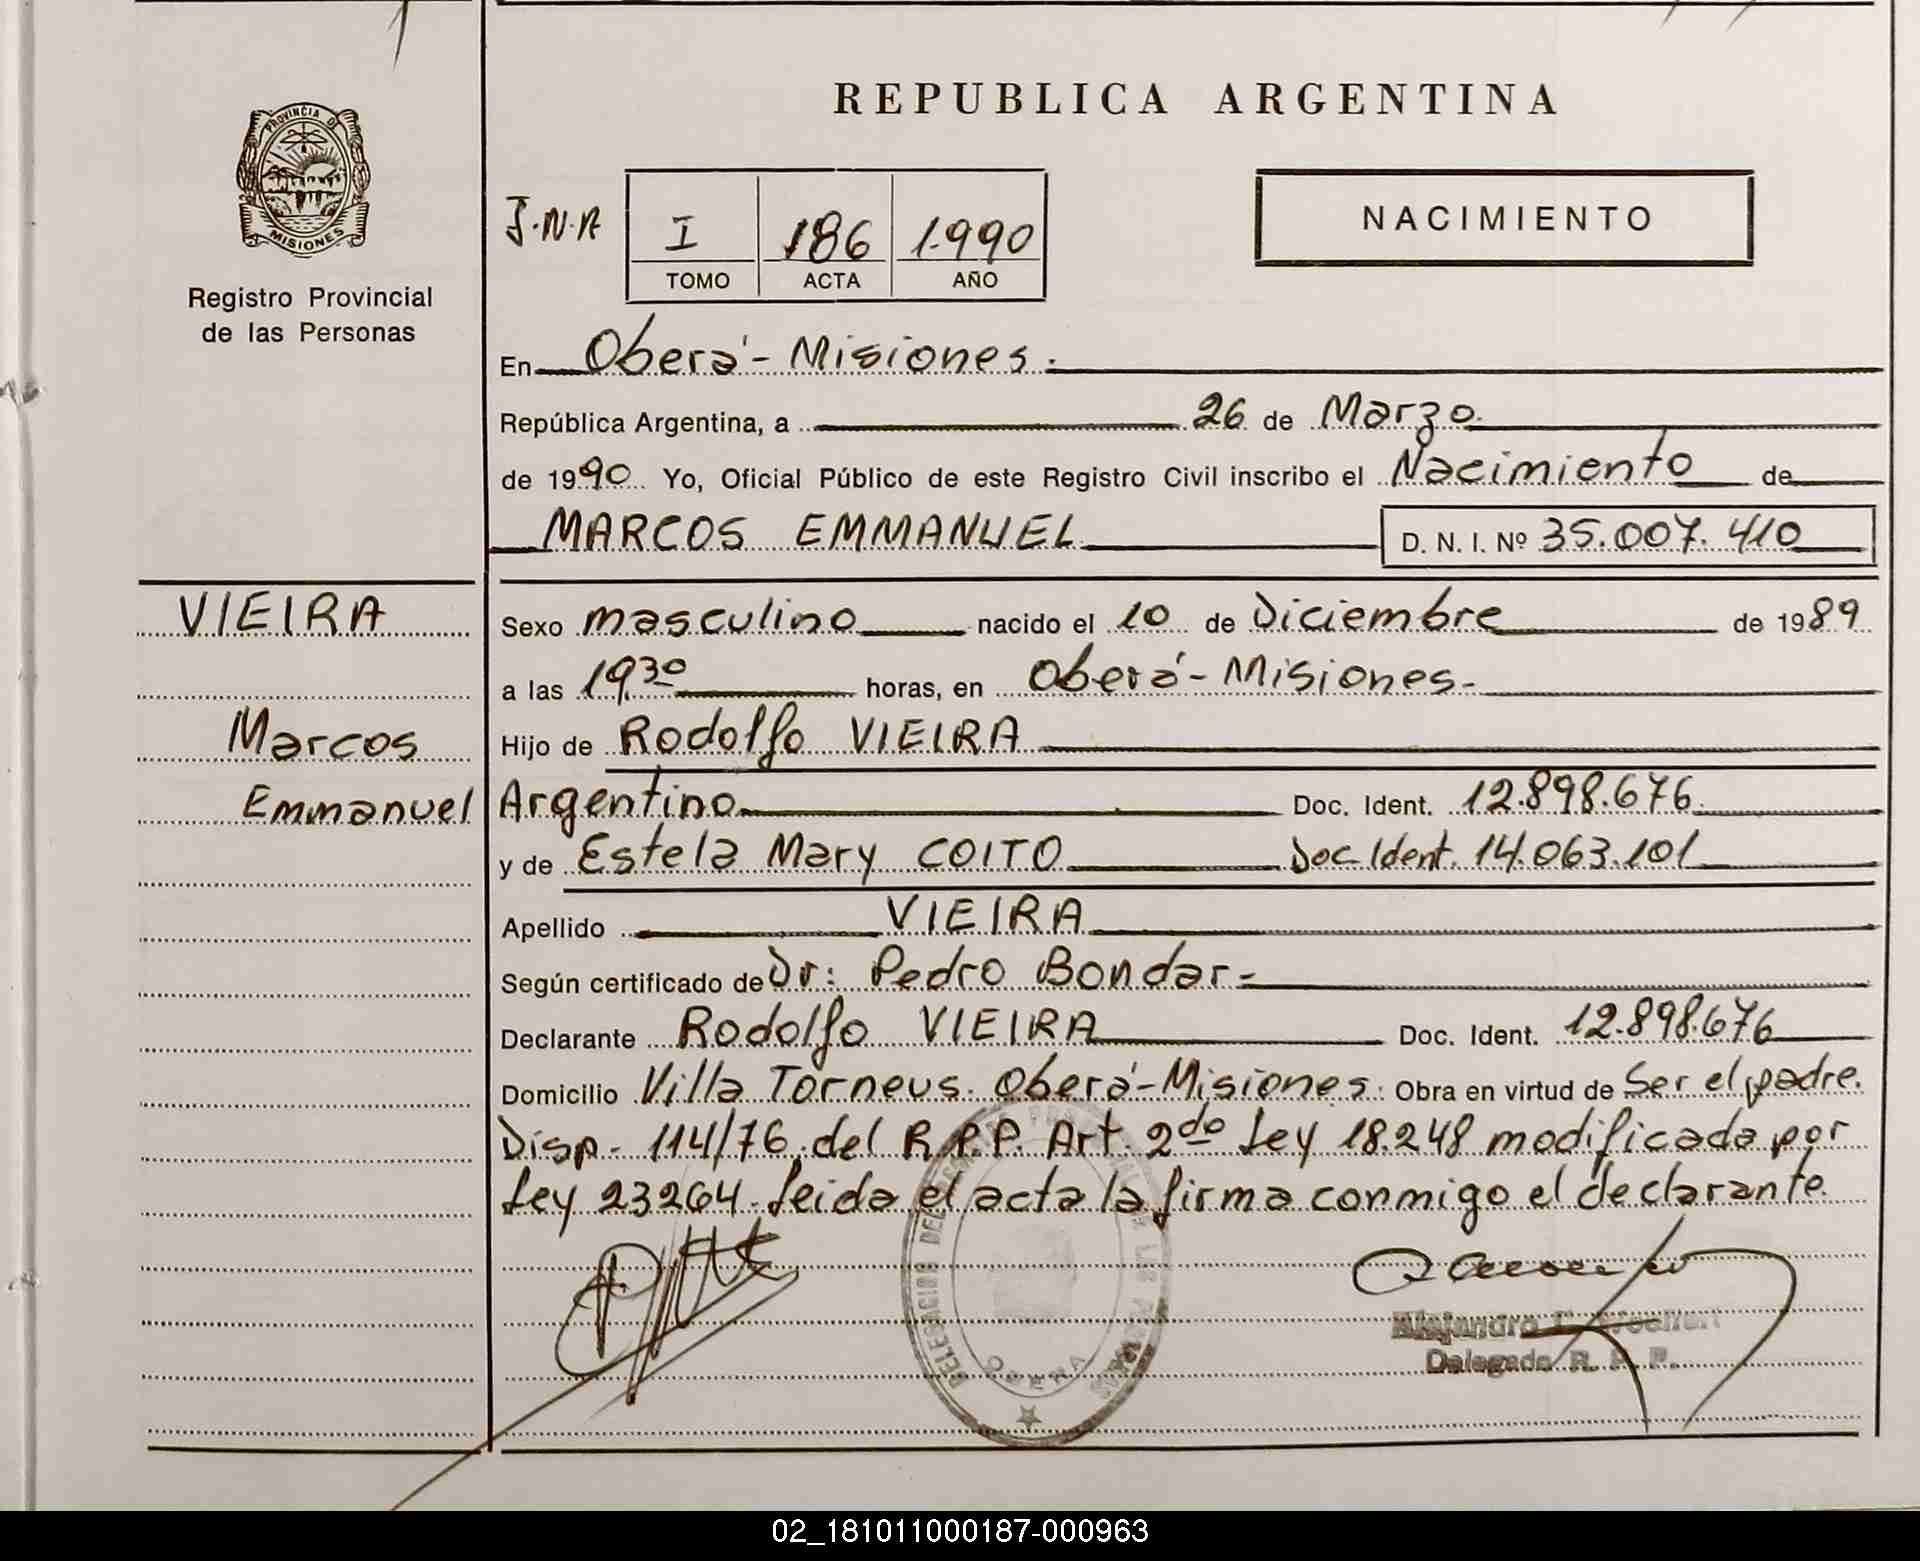 REPUBLICA ARGENTINA
PROVINCIA DE
MISIONES
Registro Provincial
de las Personas
J.N.A
I 186 1.990
TOMO ACTA AÑO
NACIMIENTO
En Oberá - Misiones.
República Argentina, a 26 de Marzo.
de 1990 Yo, Oficial Público de este Registro Civil inscribo el Nacimiento de
MARCOS EMMANUEL D. N. I. Nº 35.007.410
VIEIRA
Marcos
Emmanuel
Sexo masculino nacido el 10 de Diciembre de 1989
a las 19,30 horas, en Oberá - Misiones.-
Hijo de Rodolfo VIEIRA
Argentino Doc. Ident. 12.898.676
y de Estela Mary COITO Doc Ident. 14.063.101
Apellido VIEIRA
Según certificado de Dr: Pedro Bondar-
Declarante Rodolfo VIEIRA Doc. Ident. 12.898.676
Domicilio Villa Torneus. Oberá-Misiones. Obra en virtud de Ser el padre.
Disp- 114/76 del R.P.P. Art. 2do Ley 18.248 modificada por
Ley 23264. Leida el acta la firma conmigo el declarante.
DELEGACION DEL REGISTRO PROVINCIAL DE LAS PERSONAS
OBERA
Alejandro
Delegado R. P. P.
02_181011000187-000963